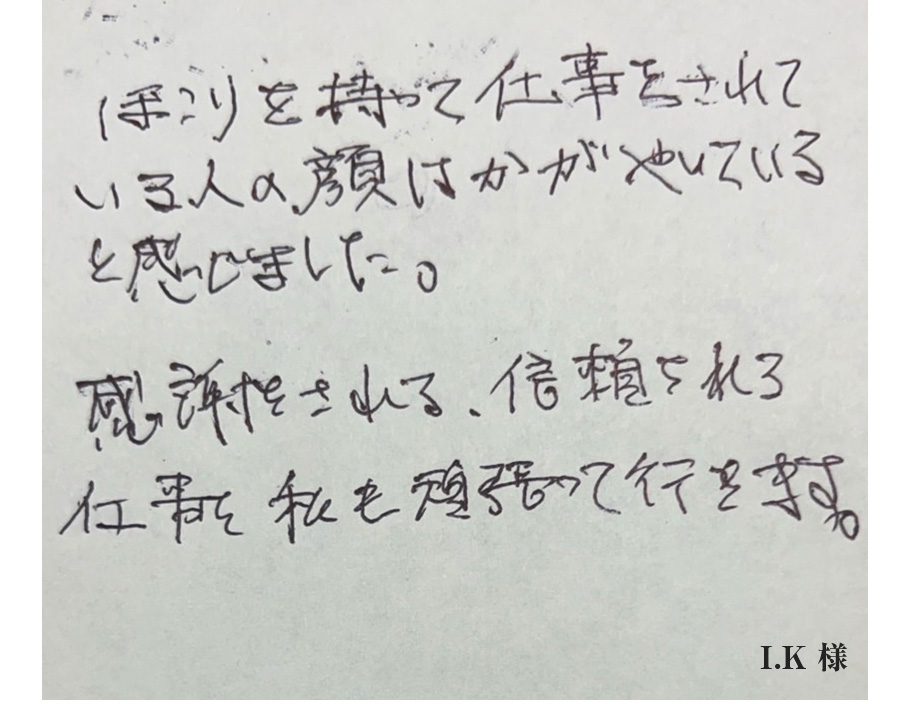 ほこりを持って仕事をされて
いる人の顔はかがやいている
と感じました。
感謝をされる、信頼をされる
仕事を私も頑張って行きます。
I.K 様